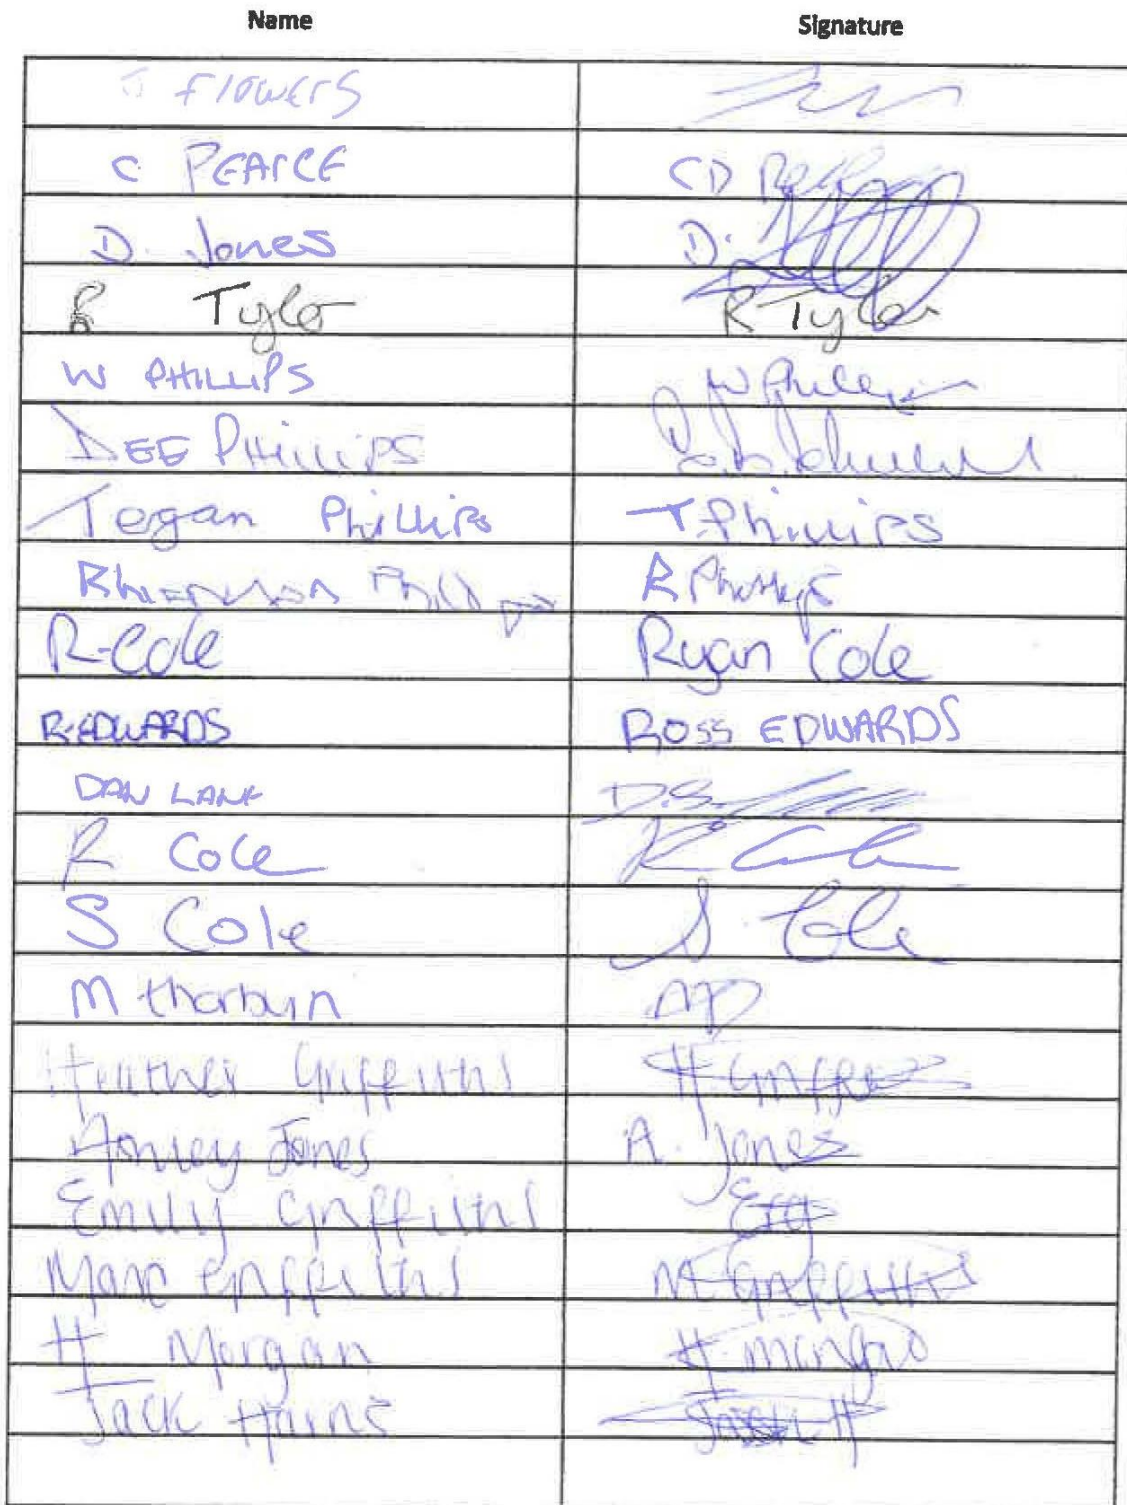 Name Signature
J Flowers
C PEARCE CD
D. Jones D.
R Tyler R Tyler
W PHILLIPS W
DEE PHILLIPS
Tegan Phillips T. Phillips
Rhiannon Phillips R Phillips
R-Cole Ryan Cole
R-EDWARDS ROSS EDWARDS
DAN LANE D.S.
R Cole R
S Cole S. Cole
M thorburn
Heather Griffiths H
Ashley Jones A. Jones
Emily Griffiths
Marc Griffiths M Griffiths
H Morgan H
Jack Harris